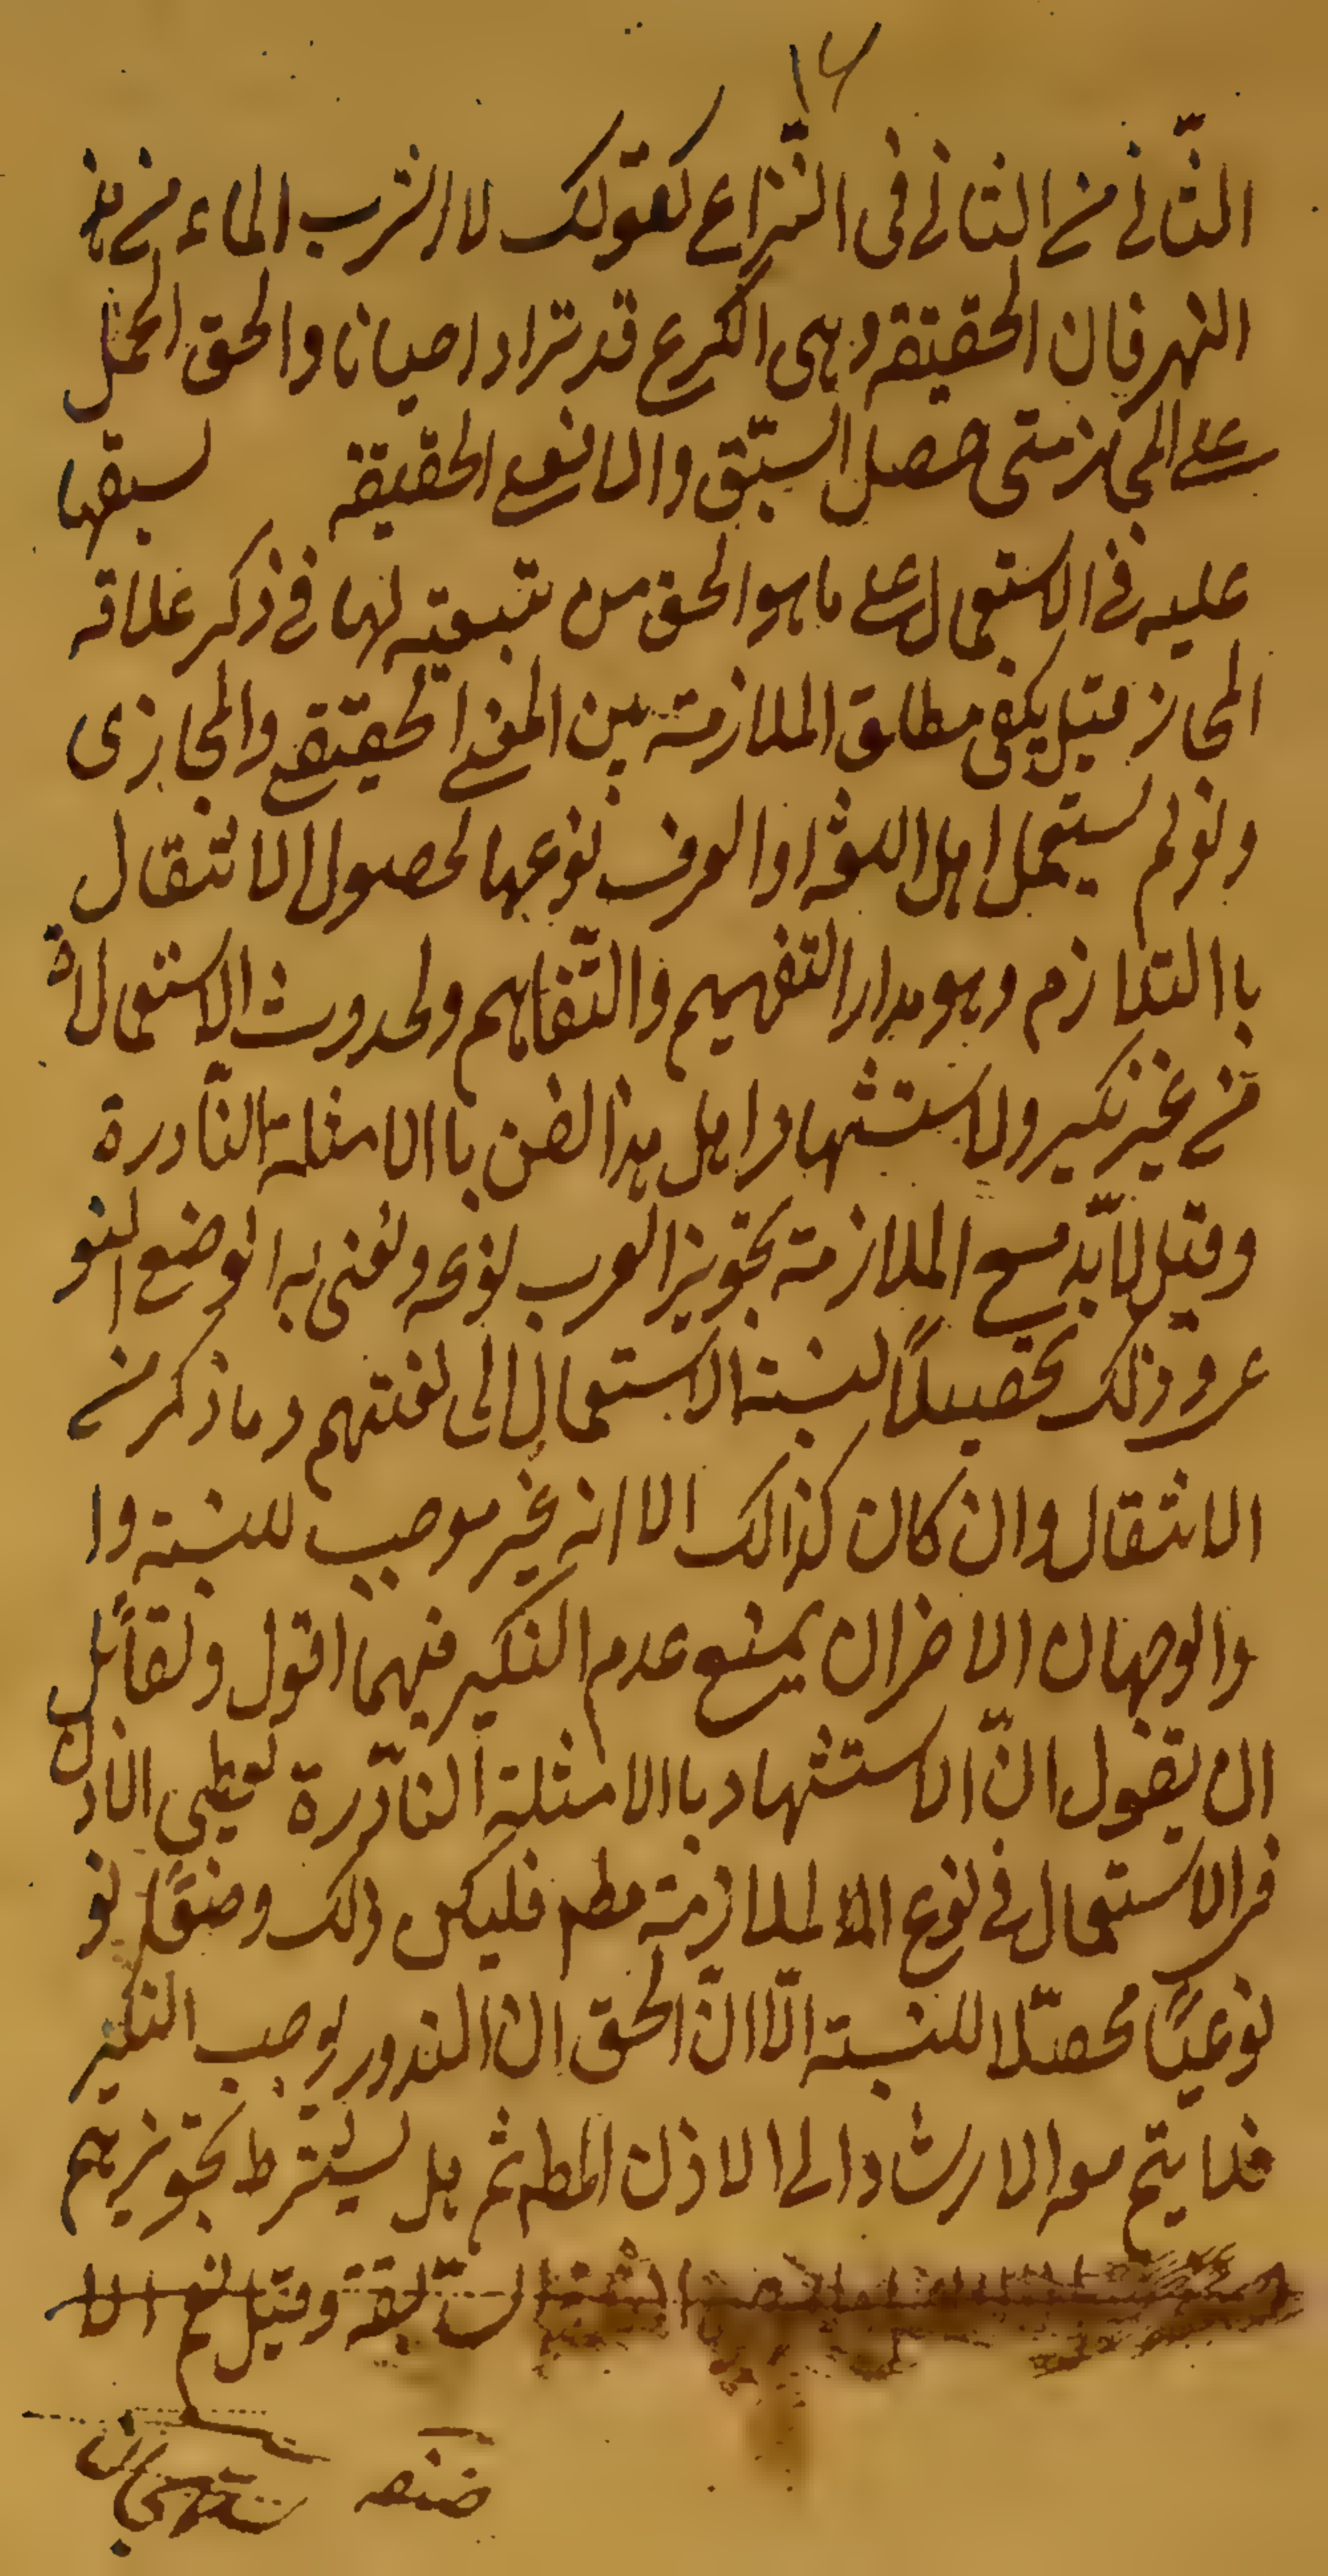 ١٤
الثّانى من الثانى فى النّزاع كقولك لا اشرب الماء من هذ
النهر فان الحقيقة وهى الكرع قد تراد احيانا والحق الحمل
على المجاز متى حصل السّبق والمانع الحقيقة لسبقها
عليه فى الاستعمال على ما هو الحق من تبعيته لها فى ذكر علاقة
المجاز قيل يكفى مطلق الملازمة بين المعنى الحقيقى والمجازى
ولو لم يستعمل اهل اللغة او العرف نوعها لحصول الانتقال
باالتلازم وهو مدار التفهيم والتّفاهم ولحدوث الاستعمالاة
من غير نكير ولاستشهاد اهل هذا الفن باالامثلة النّادرة
وقيل لابّد مع الملازمة تجويز العرب نوعه ونعنى به الوضع النو
عى وذلك تحصيلاً لنسبة الاستعمال الى لغتهم وما ذكر من
الانتقال وان كان كذالك الا انه غير موجب للنسبة وا
والوجهان الاخران يمنع عدم النكير فيهما اقول ولقائل
ان يقول انّ الاستشهاد باالامثلة النادّرة يعطى الاذن
فى الاستعمال فى نوع الملازمة مطم فليكن ذلك وضعًا نو
نوعيًا محصّلا للنسبة الّا انّ الحق ان الندور يوجب النكير
فلا يتم معه الارشاد الى الاذن المطم ثم هل يشترط تجويزهم
السّابقة وقيل نعم الا